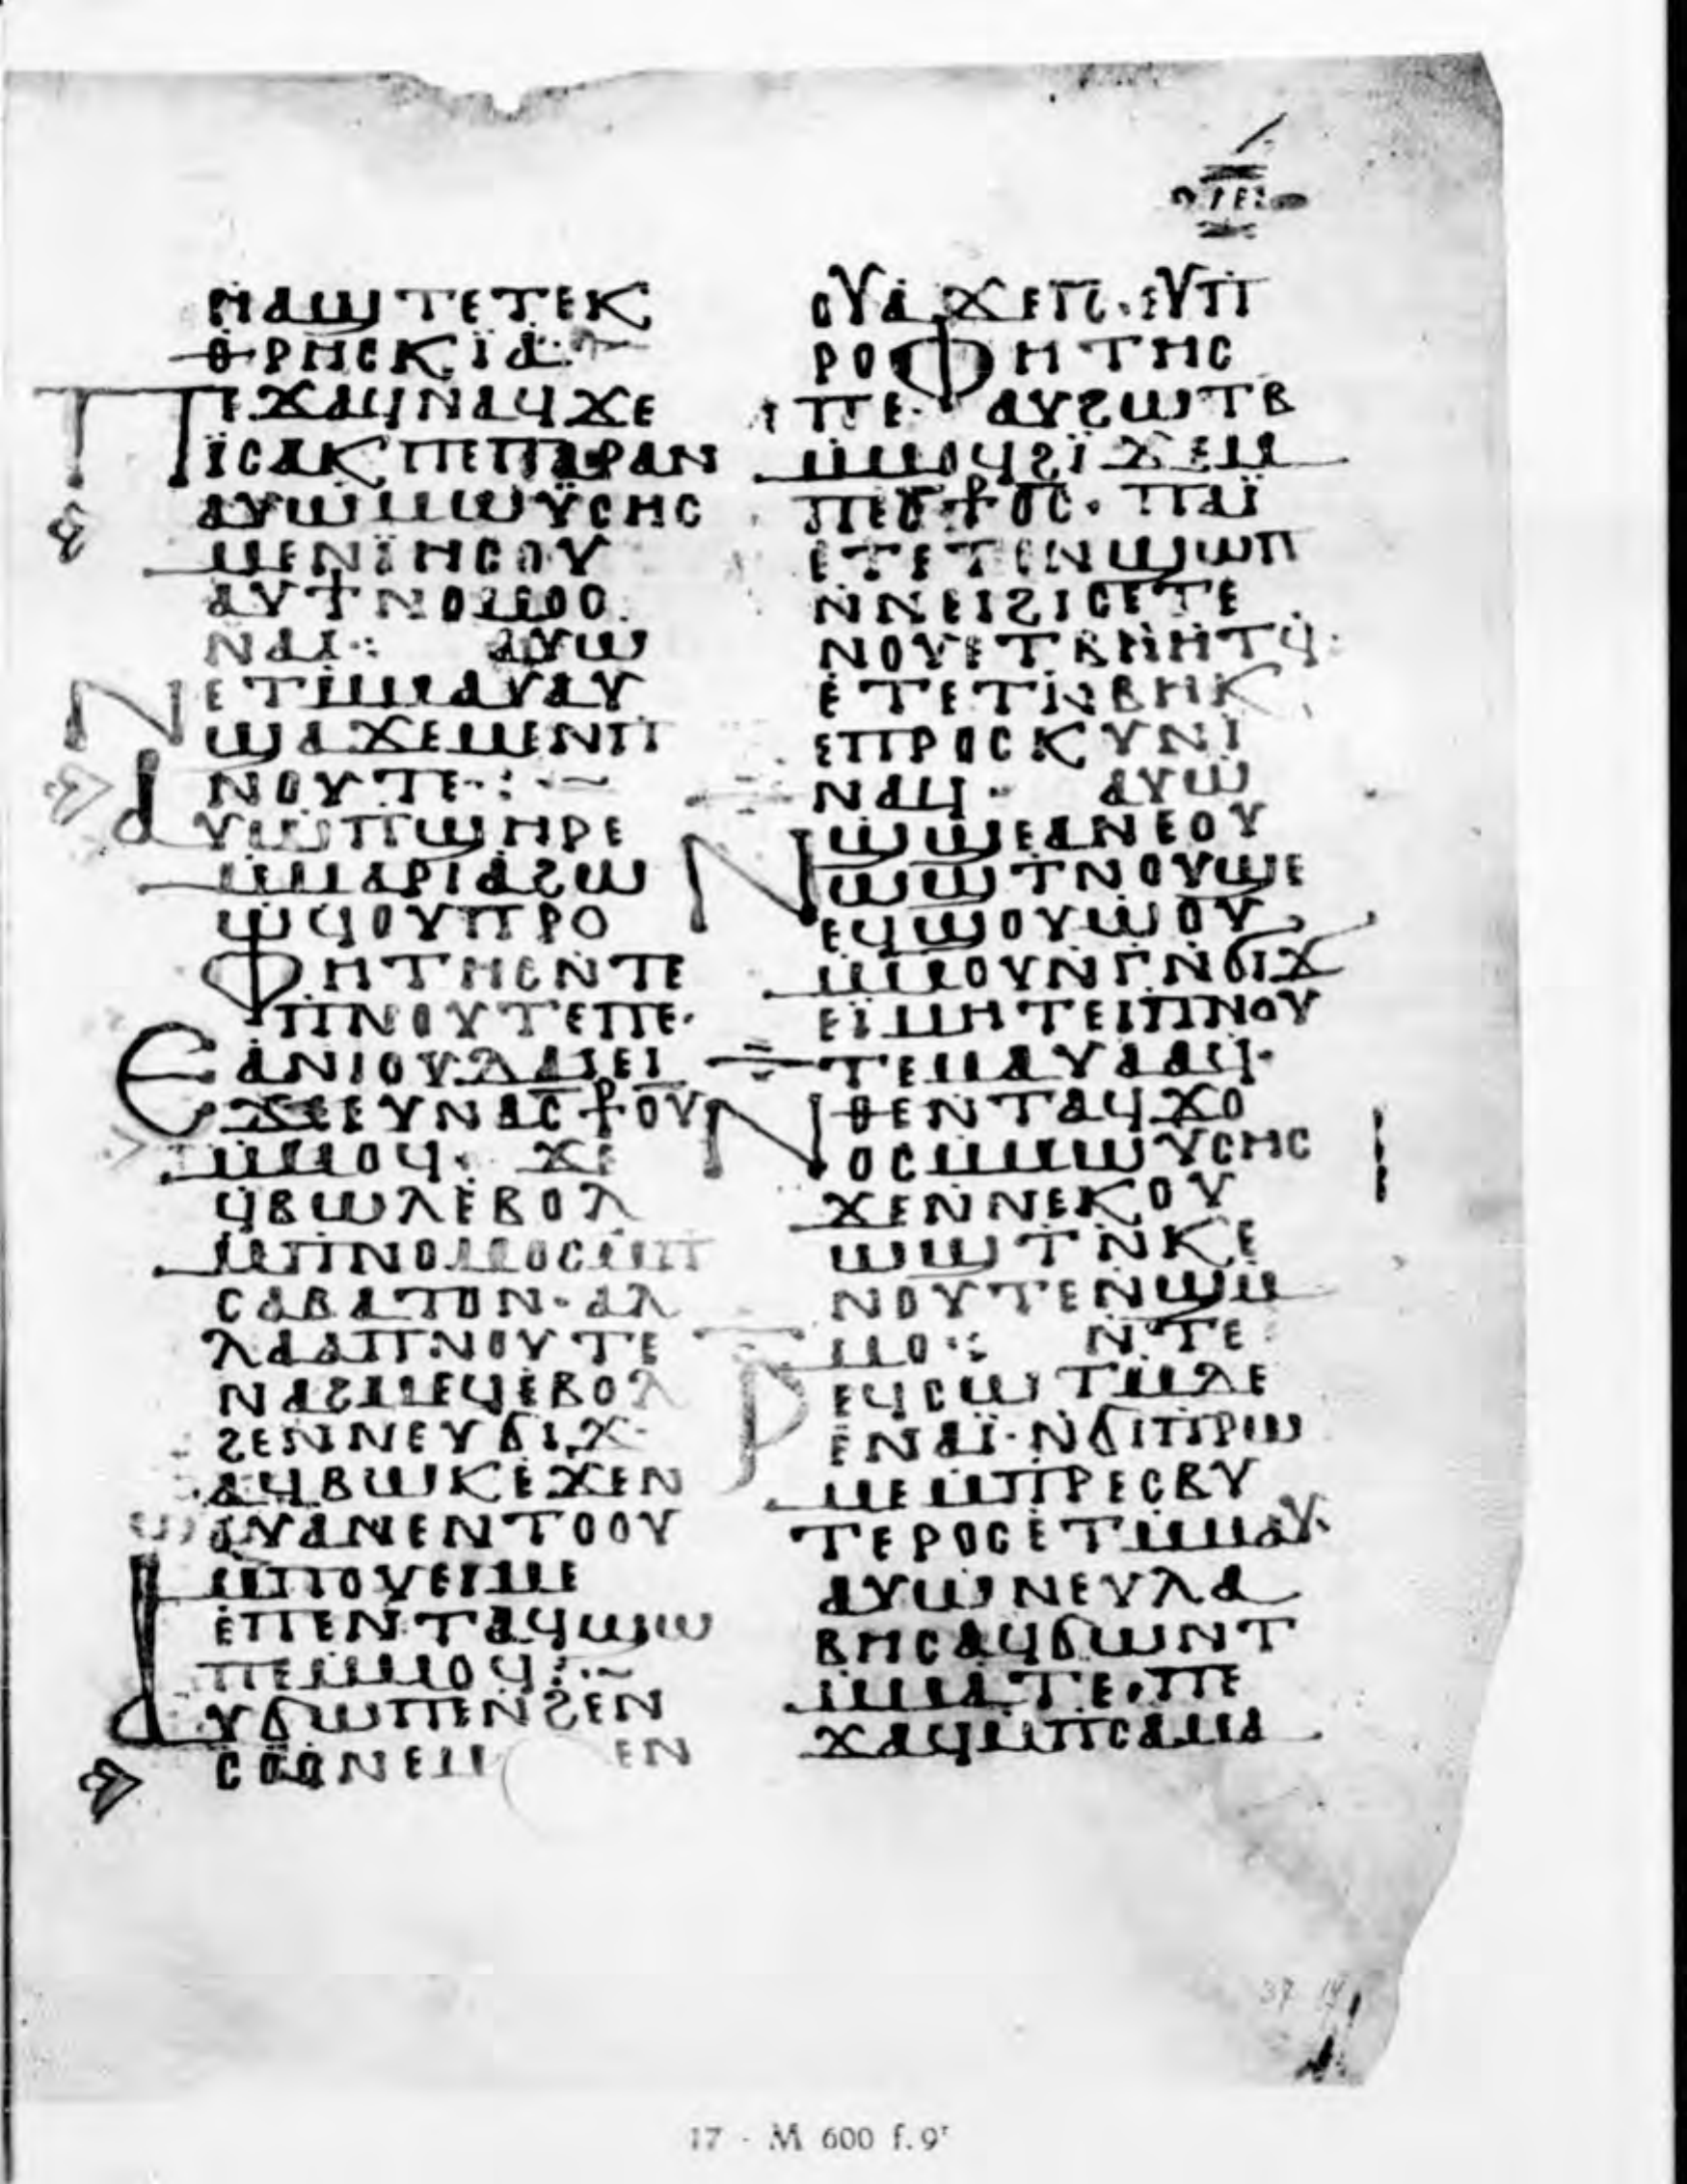 ⲚⲀϢ ⲦⲈ ⲦⲈⲔ
ⲐⲢⲎⲤⲔⲒ̈Ⲁ
ⲠⲈϪⲀϤ ⲚⲀϤ ϪⲈ
ⲒⲤⲀⲔ ⲠⲈ ⲠⲀⲢⲀⲚ
ⲀⲨⲰ ⲘⲰⲨ̈ⲤⲎⲤ
ⲘⲈⲚ Ⲓ̈ⲎⲤⲞⲨ
ⲀⲨϮ ⲚⲞⲘⲞⲤ
ⲚⲀⲒ ⲀⲨⲰ
ⲚⲈⲦⲘⲘⲀⲨ ⲀⲨ
ϢⲀϪⲈ ⲘⲈⲚ Ⲡ
ⲚⲞⲨⲦⲈ
ⲀⲨⲰ ⲠϢⲎⲢⲈ
ⲘⲘⲀⲢⲒⲀ ϨⲰ
ⲰϤ ⲞⲨⲠⲢⲞ
ⲪⲎⲦⲎⲤ ⲚⲦⲈ
ⲠⲚⲞⲨⲦⲈ ⲠⲈ
ⲈⲀⲚⲒⲞⲨⲆⲀⲒ ⲈⲒ
ϪⲈ ⲈⲨⲚⲀⲤ⳨ⲞⲨ
ⲘⲘⲞϤ ϪⲈ
ϤⲂⲰⲖ ⲈⲂⲞⲖ
ⲘⲠⲚⲞⲘⲞⲤ ⲘⲠ
ⲤⲀⲂⲀⲦⲞⲚ ⲀⲖ
ⲖⲀ ⲀⲠⲚⲞⲨⲦⲈ
ⲚⲀϨⲘⲈϤ ⲈⲂⲞⲖ
ϨⲈⲚ ⲚⲈⲨϬⲒϪ
ⲀϤⲂⲰⲔ ⲈϪⲈⲚ
ⲞⲨⲀ ⲚⲈⲚⲦⲞⲞⲨ
ⲘⲠⲞⲨⲈⲒⲘⲈ
ⲈⲠⲈⲚⲦⲀϤϢⲰ
ⲠⲈ ⲘⲘⲞϤ
ⲀⲨϬⲰⲠⲈ ⲚϨⲈⲚ
ⲤⲞⲞⲚⲈ ⲈⲚ
ⲞⲨⲀ ϪⲈ ⲠⲒ ⲈⲨⲠ
ⲢⲞⲪⲎⲦⲎⲤ
ⲠⲈ ⲀⲨϨⲰⲦⲂ
ⲘⲘⲞϤ ϨⲒ̈ϪⲈⲘ
ⲠⲈⲤ⳨ⲞⲤ ⲠⲀⲒ̈
ⲈⲦⲈⲦⲈⲚϢⲰⲠ
ⲚⲚⲈⲒϨⲒⲤⲈ ⲦⲈ
ⲚⲞⲨ ⲈⲦⲂⲎⲎⲦϤ
ⲈⲦⲈⲦⲚⲂⲎⲔ
ⲈⲠⲢⲞⲤⲔⲨⲚⲒ
ⲚⲀϤ ⲀⲨⲰ
ⲚϢϢⲈ ⲀⲚ ⲈⲞⲨ
ⲰϢⲦ ⲚⲞⲨϢⲈ
ⲈϤϢⲞⲨⲰⲞⲨ
ⲘⲘⲞⲨⲚⲄ ⲚϬⲒϪ
ⲈⲒ̈ⲘⲎⲦⲈⲒ ⲠⲚⲞⲨ
ⲦⲈ ⲘⲀⲨⲀⲀϤ
ⲚⲐⲈ ⲚⲦⲀϤϪⲞ
ⲞⲤ ⲘⲘⲰⲨⲤⲎⲤ
ϪⲈ ⲚⲚⲈⲔⲞⲨ
ⲰϢⲦ ⲚⲔⲈ
ⲚⲞⲨⲦⲈ ⲚϢⲘ
ⲘⲞ ⲚⲦⲈ
ⲢⲈϤⲤⲰⲦⲘ ⲆⲈ
ⲈⲚⲀⲒ̈ ⲚϬⲒ ⲠⲢⲰ
ⲘⲈ ⲘⲠⲢⲈⲤⲂⲨ
ⲦⲈⲢⲞⲤ ⲈⲦⲘⲘⲀⲨ
ⲀⲨⲰ ⲚⲈⲨⲖⲀ
ⲂⲎⲤ ⲀϤϬⲰⲚⲦ
ⲘⲘⲀⲦⲈ ⲠⲈ
ϪⲀϤ ⲘⲠⲤⲀⲘⲀ
17 - M 600 f.9ʳ